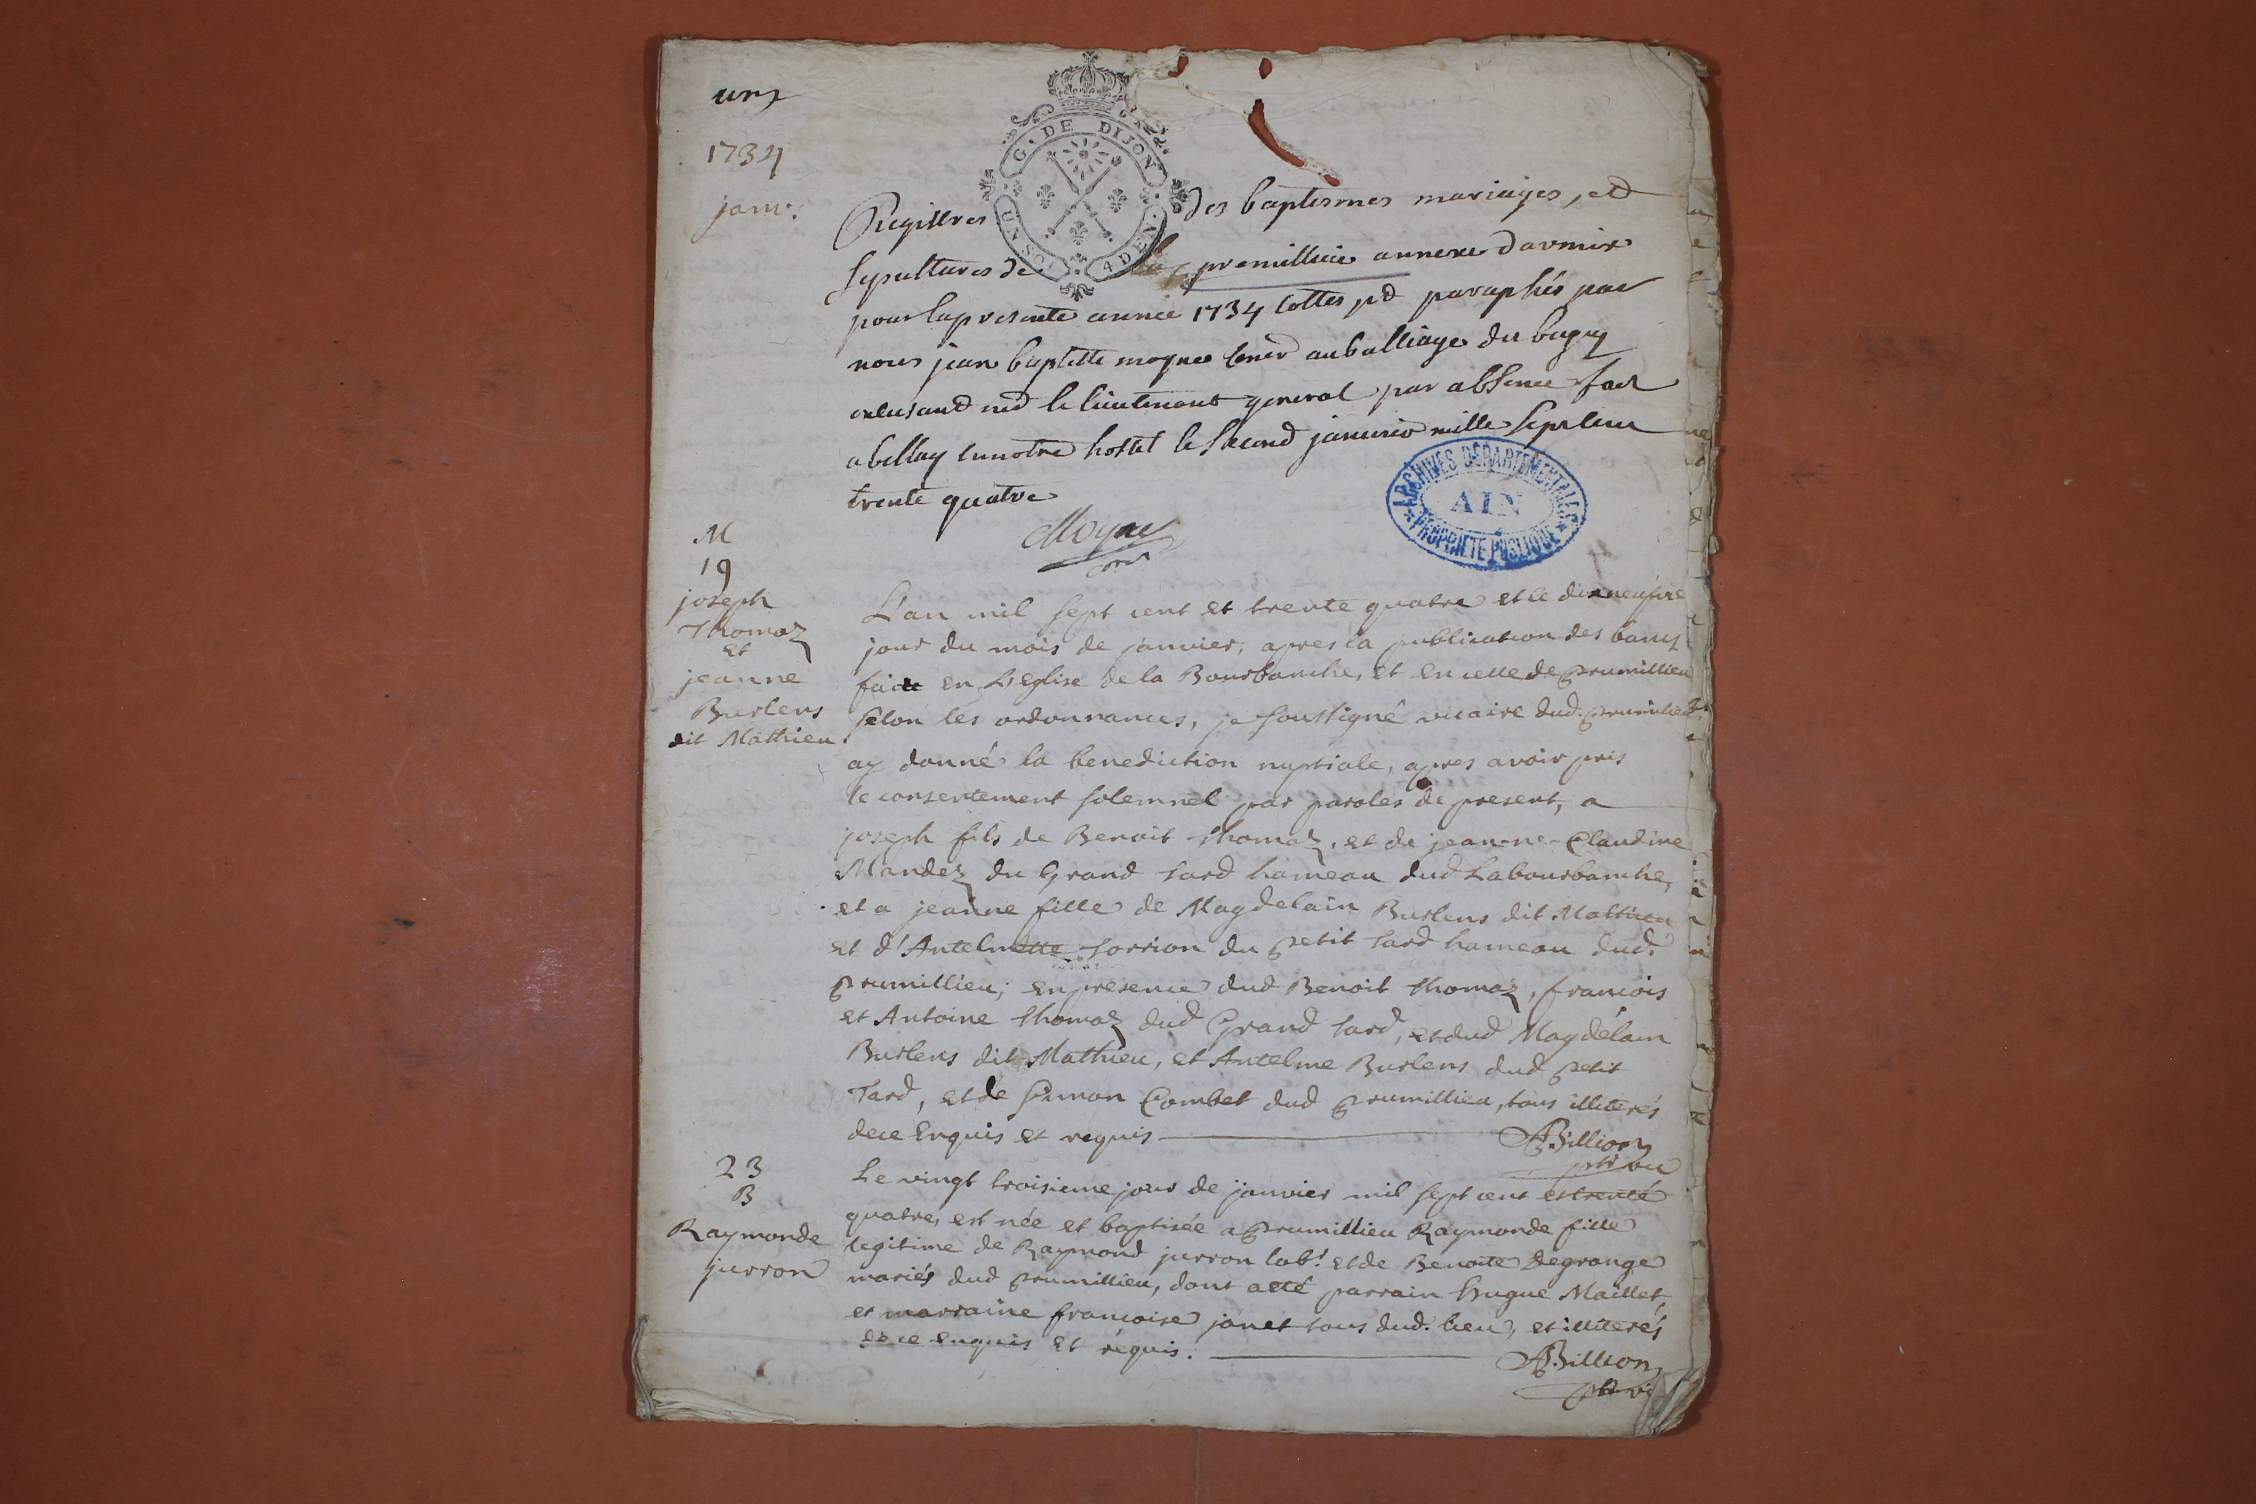 un
1734
janv.
G. DE DIJON
UN SOL 4 DEN.
Registres des baptesmes mariages, et
sepultures de premillieu annexe darmix
pour la presente année 1734 cottes et paraphés par
nous jean baptiste moyne au balliage du bugey
le lieutenant general par absence fait
a bellay en notre hostel le second janvier mille sept cent
trente quatre
Moyne
ARCHIVES DÉPARTEMENTALES
AIN
PROPRIÉTÉ PUBLIQUE
M
19
joseph
Thomaz
et
jeanne
Burlens
dit Mathieu
L'an mil sept cent et trente quatre et le dixneufvie
jour du mois de janvier, apres la publication des bancs
faite en L'eglise de la Bourbanche, et en celle de prumillieu
selon les ordonnances, je soussigné vicaire dud. prumillieu
ay donné la benediction nuptiale, apres avoir pris
le consentement solemnel par paroles de present, a
joseph fils de Benoit thomaz, et de jeanne-Claudine
Mandez du Grand tard hameau dud Labourbanche,
et a jeanne fille de Magdelain Burlens dit Mathieu
et d'Antelmette sorrion du petit tard hameau dud.
prumillieu; en presence dud Benoit thomaz, francois
et Antoine thomaz dud Grand tard, et dud Magdelain
Burlens dit Mathieu, et Antelme Burlens dud petit
Tard, et de Simon Combet dud prumillieu, tous illiterés
de ce Enquis et requis
ABillion
ptre vic
23
B
Raymonde
jurron
Le vingt troisieme jour de janvier mil sept cent et trente
quatre, est née et baptisée a prumillieu Raymonde fille
legitime de Raymond jurron lab.r et de Benoite Degrange
mariés dud prumillieu, dont a eté parrain hugue Maillet,
et marraine francoise janet tous dud. lieu, et illiterés
de ce enquis et réquis.
ABillion
ptre vi